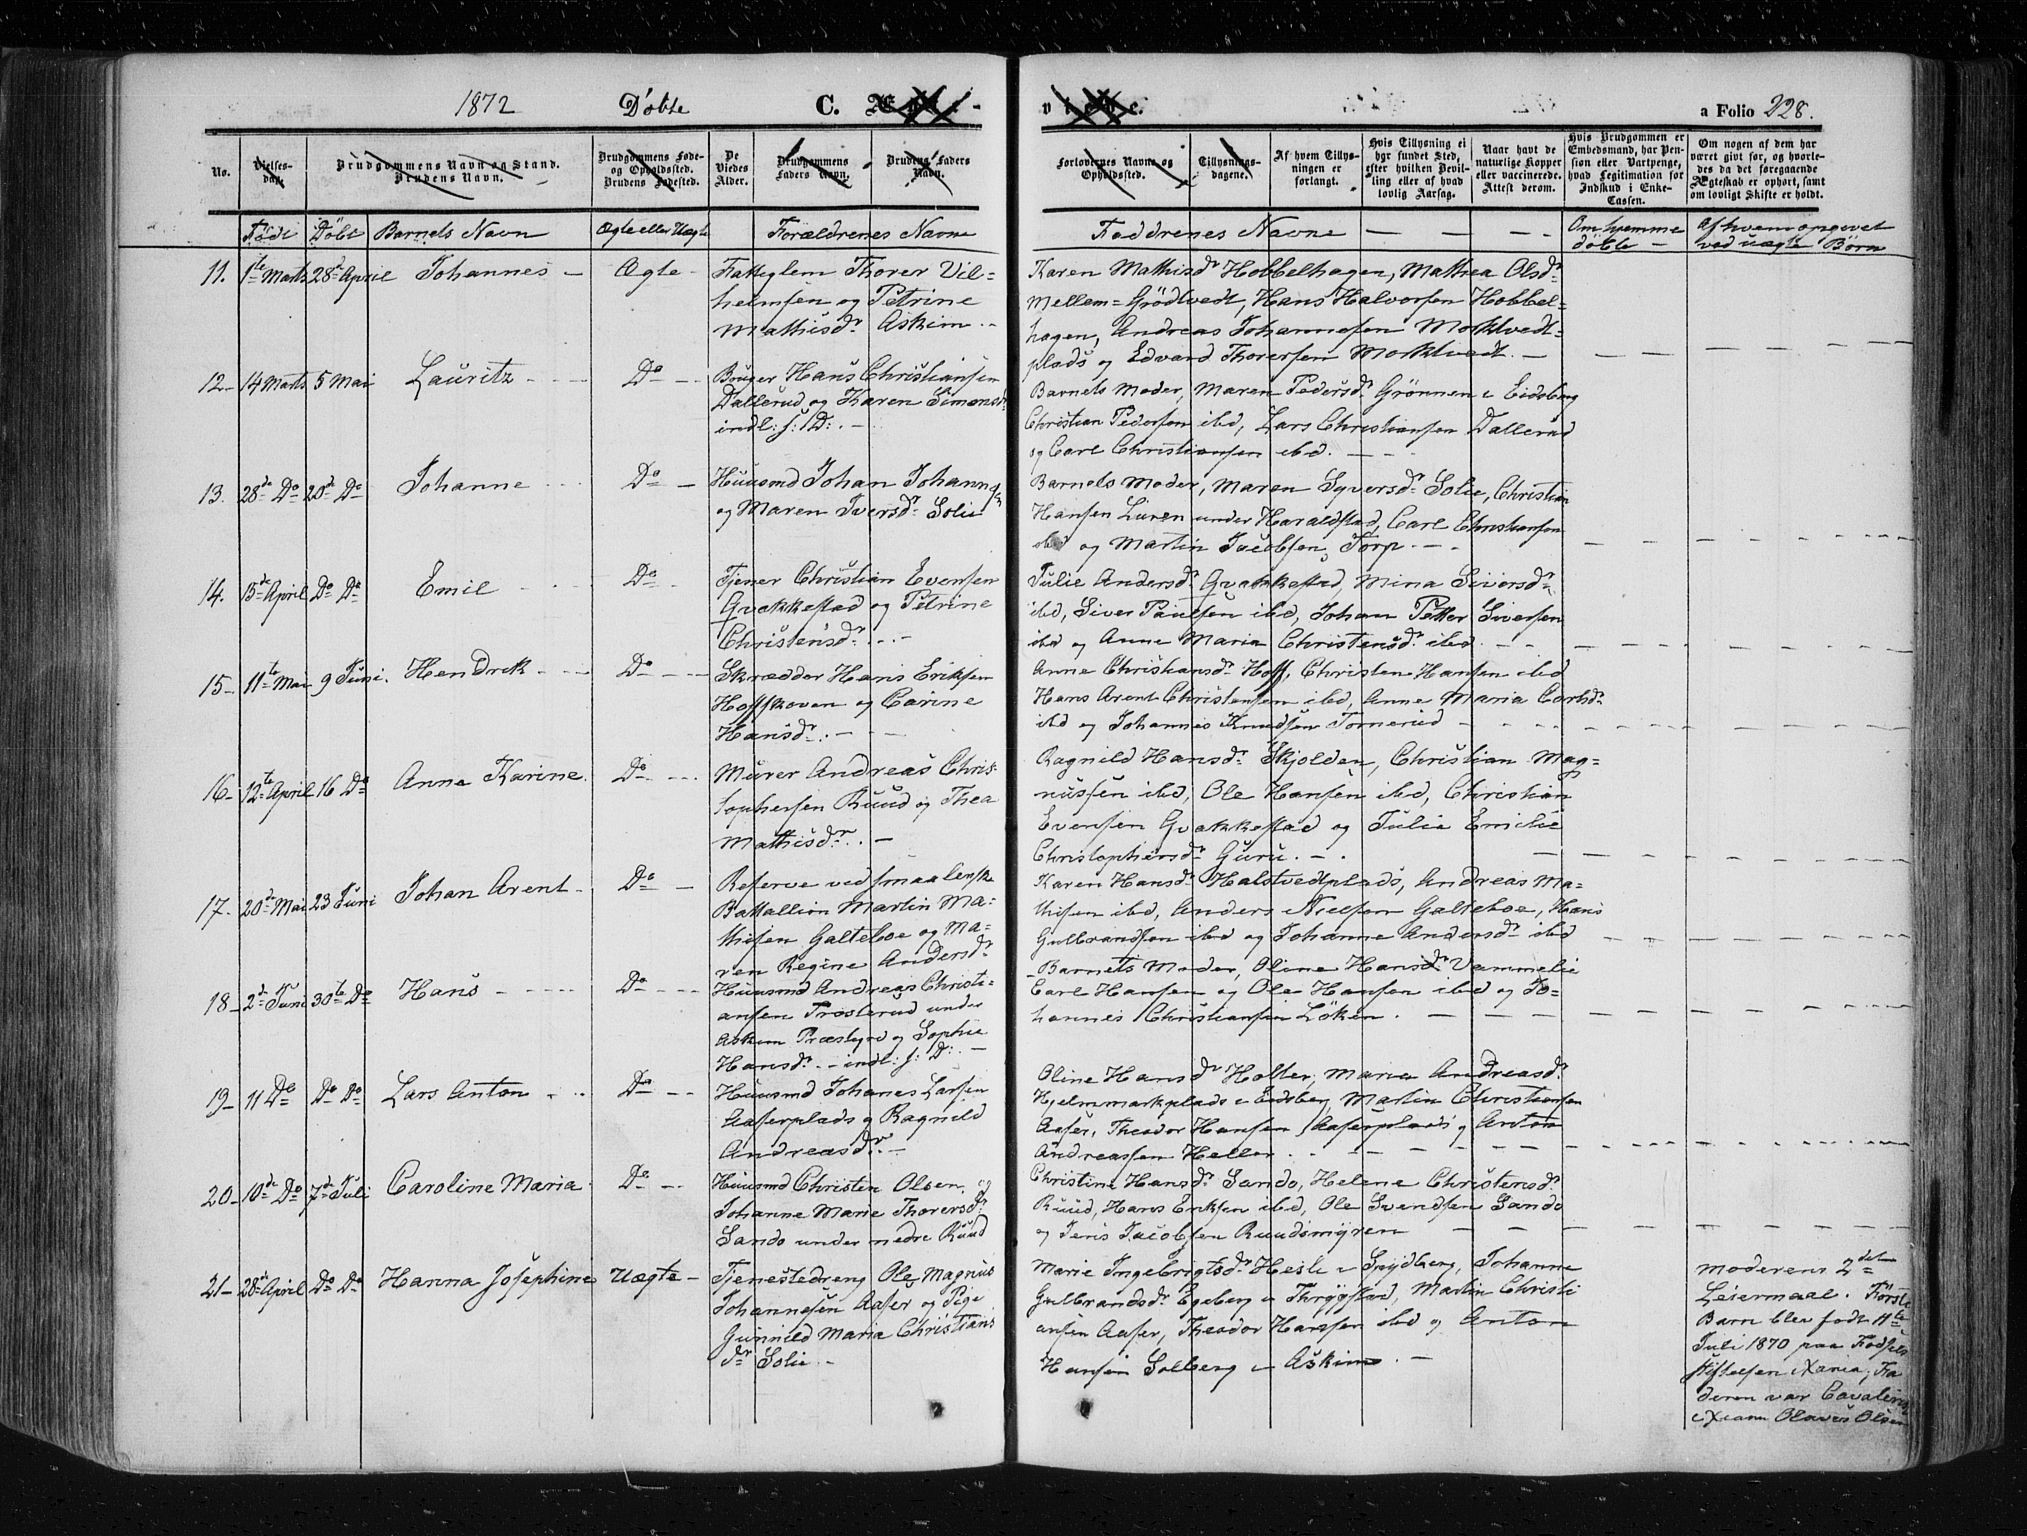 1872 Døbte C. a Folio 228.
No. Vielses-dag. Brudgommens Navn og Stand. Brudens Navn. Brudgommens Føde- og Opholdssted. Brudens Fødested. De Viedes Alder. Brudgommens Faders Navn. Brudens Faders Navn.
Forlovernes Navne og Opholdssted. Tillysnings-dagene. Af hvem Tillys-ningen er forlangt. Hvis Tillysning ei har fundet Sted, efter hvilken Bevil-ling eller af hvad lovlig Aarsag. Naar havt de naturlige Kopper eller vaccinerede. Attest derom. Hvis Brudgommen er Embedsmand, har Pen-sion eller Vartpenge, hvad Legitimation for Indskud i Enke-Cassen. Om nogen af dem har været givt før, og hvorle-des da det foregaaende Ægteskab er ophørt, samt om lovligt Skifte er holdt.
Født Døbt Barnets Navn Ægte eller Uægte Forældrenes Navne
Faddrenes Navne — — — Om hjemme døbte — Af hvem opgivet ved uægte Børn
11. 1ste Marts 28de April Johannes — Ægte — Fattiglem Thorer Vil=
helmsen og Petrine
Mathisdr Askim. —
Karen Mathisdr Hobbelhagen, Mathea Olsdr
Mellem=Grödtvedt, Hans Halvorsen Hobbel=
hagen, Andreas Johannesen Morktvedt=
plads og Edvard Thorersen Morktvedt. —
12 — 14 Marts 5 Mai Lauritz — Do — Bruger Hans Christiansen
Dallerud og Karen Simonsdr
indl: s: D: —
Barnets Moder, Maren Pedersdr Grönnen i Eidsberg
Christian Pedersen ibd, Lars Christiansen Dallerud
og Carl Christiansen ibd. —
13. 28de Do 20de Do Johanne Do — Huusmd Johan Johannes
og Maren Iversdr Solie
Barnets Moder, Maren Syversdr Solie, Christian
Hansen Luren under Haraldstad, Carl Christiansen
ibd og Martin Jacobsen, Torp. —
14. 15de April Do Do Emil Do — Tjener Christian Evensen
Gvakkestad og Petrine
Christensdr. —
Julie Andersdr Gvakkestad, Mina Siversdr
ibd, Siver Paulsen ibd, Johan Petter Siversen
ibd og Anne Maria Christensdr ibd
15 — 11te Mai 9 Juni. Hendrik — Do — Skrædder Hans Eriksen
Hoffskoven og Carine
Hansdr. —
Anne Christiansdr Hoff, Christen Hansen ibd
Hans Arent Christensen ibd, Anne Maria Carlsdr
ibd og Johannes Knudsen Tornerud —
16 — 12te April 16 Do Anne Karine. Do — Murer Andreas Chris-
tophersen Ruud og Thea
Mathisdr. —
Ragnild Hansdr Skjolden, Christian Mag=
nussen ibd, Ole Hansen ibd, Christian
Evensen Gvakkestad og Julie Emilie
Christophersdr Guru. —
17 — 20de Mai 23 Juni Johan Arent — Do — Reserve ved Smaalenske
Battallion Martin Ma=
thisen Galteboe og Ma=
ren Regine Andersdr
Karen Hansdr Halstvedtplads, Andreas Ma=
thisen ibd, Anders Nielsen Galteboe, Hans
Gulbrandsen ibd og Johanne Andersdr ibd
18 — 2de Juni 30te Do Hans — Do — Huusmd Andreas Christi=
ansen Trøsterud under
Askim Præstgrd og Sophie
Hansdr. — indl: s: D: —
Barnets Moder, Oline Hansdr Vammelie
Carl Hansen og Ole Hansen ibd og Jo=
hannes Christiansen Löken. —
19 — 11 Do Do Do Lars Anton Do — Huusmd Johanes Larsen
Aaserplads og Ragnild
Andreasdr. —
Oline Hansdr Holter, Maria Andreasdr
Hjelmmarkplads i Eidsberg, Martin Christiansen
Aaser, Theodor Hansen Aaserplads og Anton
Andreassen Heller
20 — 10de Do 7de Juli Caroline Maria Do — Huusmd Christen Olsen og
Johanne Marie Thorersdr
Sando under nedre Ruud
Christine Hansdr Sando, Helene Christensdr
Ruud, Hans Eriksen ibd, Ole Svendsen Sando
og Jens Jacobsen Ruudsmyren —
21 — 28de April Do Do Hanna Josephine Uægte — Tjenestedreng Ole Magnus
Johannesen Aaser og Pige
Gunnild Maria Christians
dr Solie —
Marie Ingebrigtsdr Hesle i Spydberg, Johanne
Gulbrandsdr Egeberg i Thrygstad, Martin Christi
ansen Aaser, Theodor Hansen ibd og Anton
Hansen Solberg i Askim. —
Moderens 2det
Leiermaal. Første
Barn blev født 11te
Juli 1870 paa Fødsels
stiftelsen i Xania, Fa
deren var Cavalerist
i Xiania Olaves Olsen